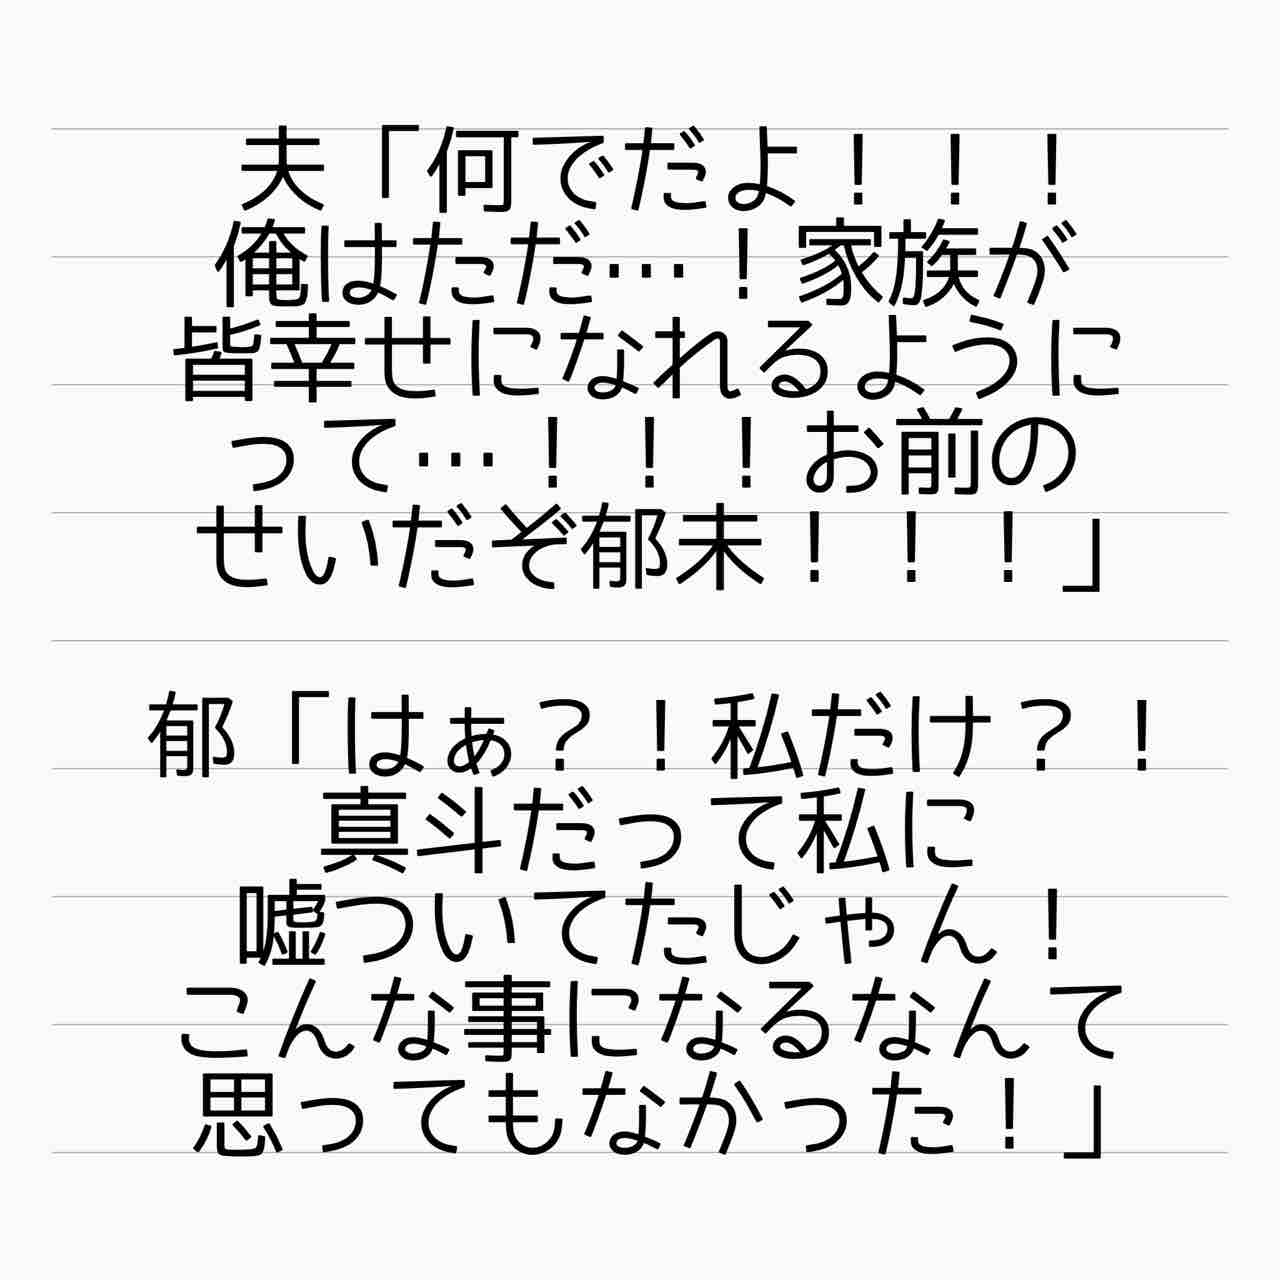 夫「何でだよ！！！
俺はただ…！家族が
皆幸せになれるように
って…！！！お前の
せいだぞ郁未！！！」
郁「はぁ？！私だけ？！
真斗だって私に
嘘ついてたじゃん！
こんな事になるなんて
思ってもなかった！」